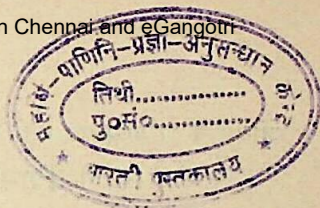 n Chennai and eGangotri
महर्षि-पाणिनि-प्रज्ञा-अनुसन्धान केन्द्र
तिथी..............
पु०सं०..............
* भारती पुस्तकालय *